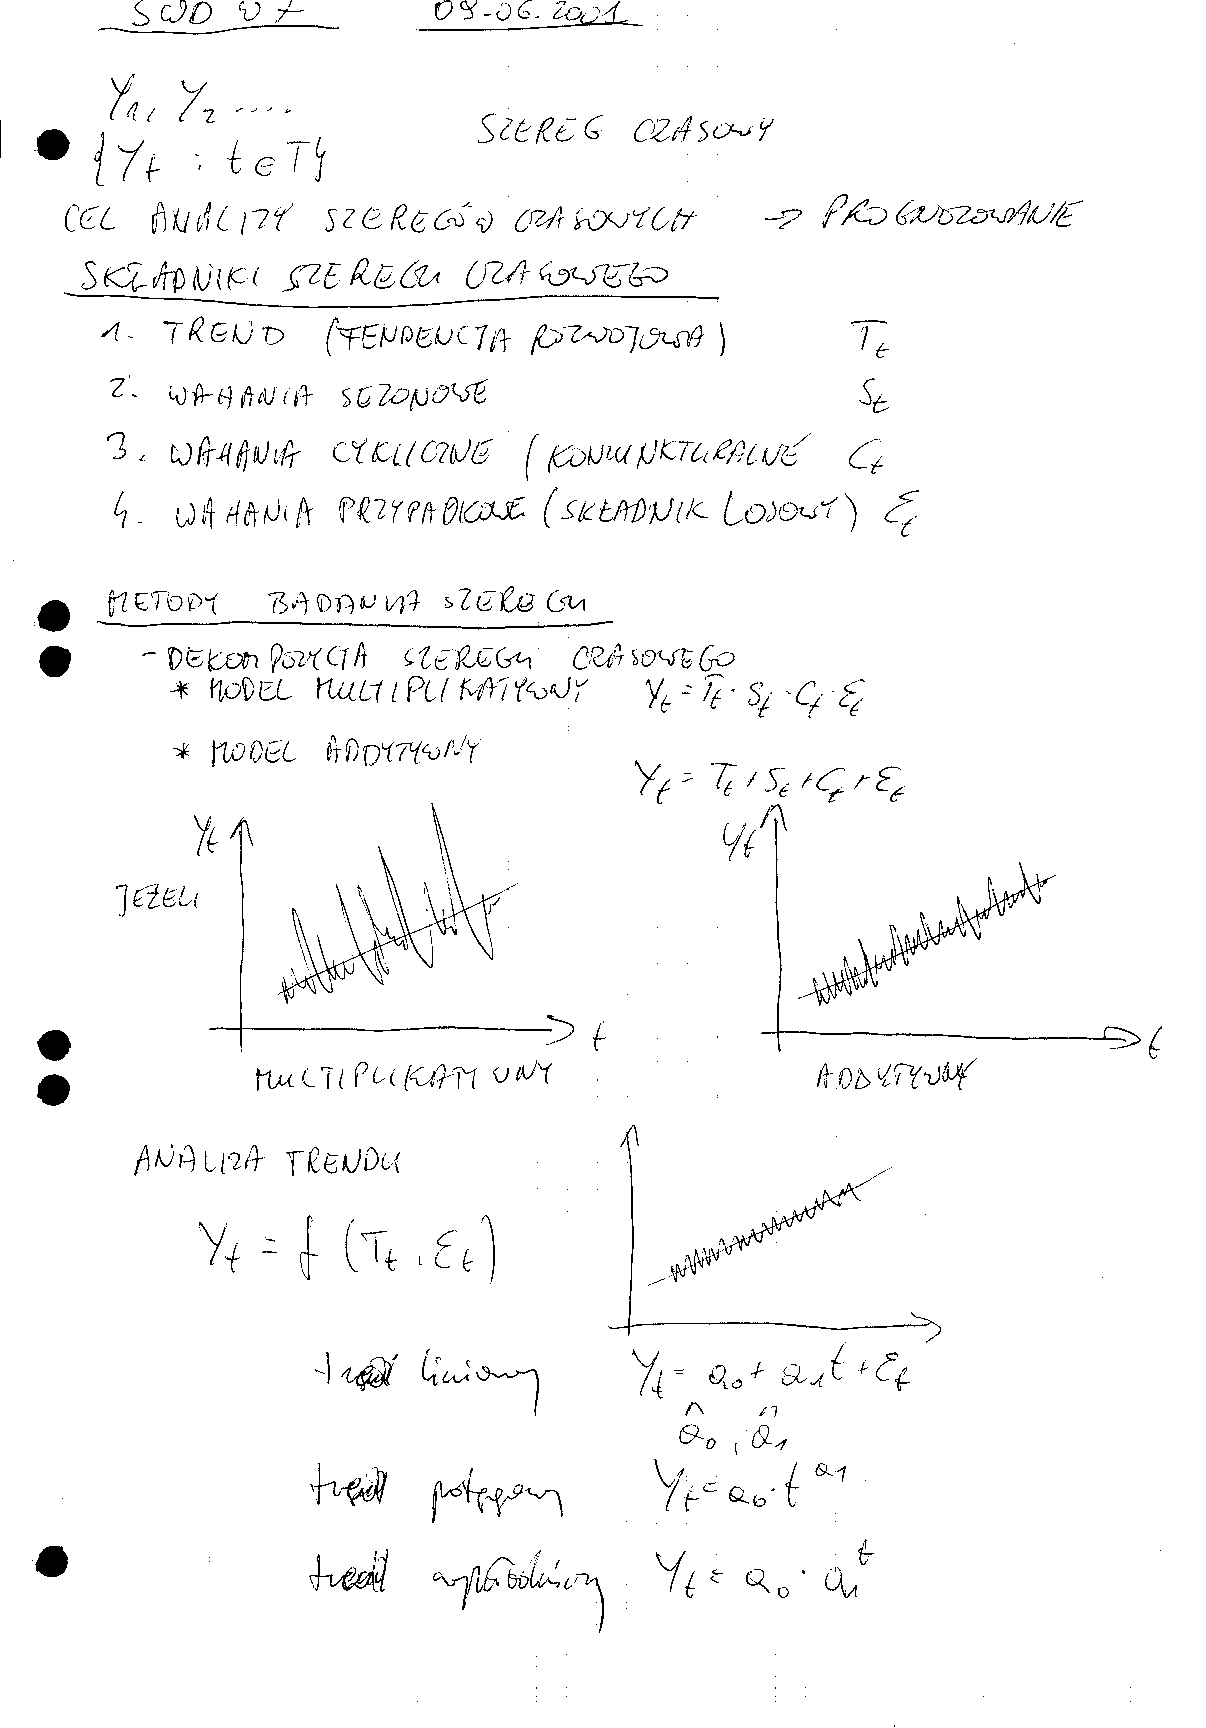 SWD W7 09-06.2001
Y₁, Y₂ ....
{Yt : t ∈ T}
SZEREG CZASOWY
CEL ANALIZY SZEREGÓW CZASOWYCH → PROGNOZOWANIE
SKŁADNIKI SZEREGU CZASOWEGO
1. TREND (TENDENCJA ROZWOJOWA) Tt
2. WAHANIA SEZONOWE St
3. WAHANIA CYKLICZNE (KONIUNKTURALNE Ct
4. WAHANIA PRZYPADKOWE (SKŁADNIK LOSOWY) Ɛt
METODY BADANIA SZEREGU
- DEKOMPOZYCJA SZEREGU CZASOWEGO
* MODEL MULTIPLIKATYWNY Yt = Tt · St · Ct · Ɛt
* MODEL ADDYTYWNY
Yt = Tt + St + Ct + Ɛt
JEŻELI
Yt
t
MULTIPLIKATYWNY
Yt
t
ADDYTYWNY
ANALIZA TRENDU
Yt = f (Tt, Ɛt)
trend liniowy Yt = a₀ + a₁t + Ɛt
â₀, â₁
trend potęgowy Yt = a₀ · t^a₁
trend Yt = a₀ · a₁^t